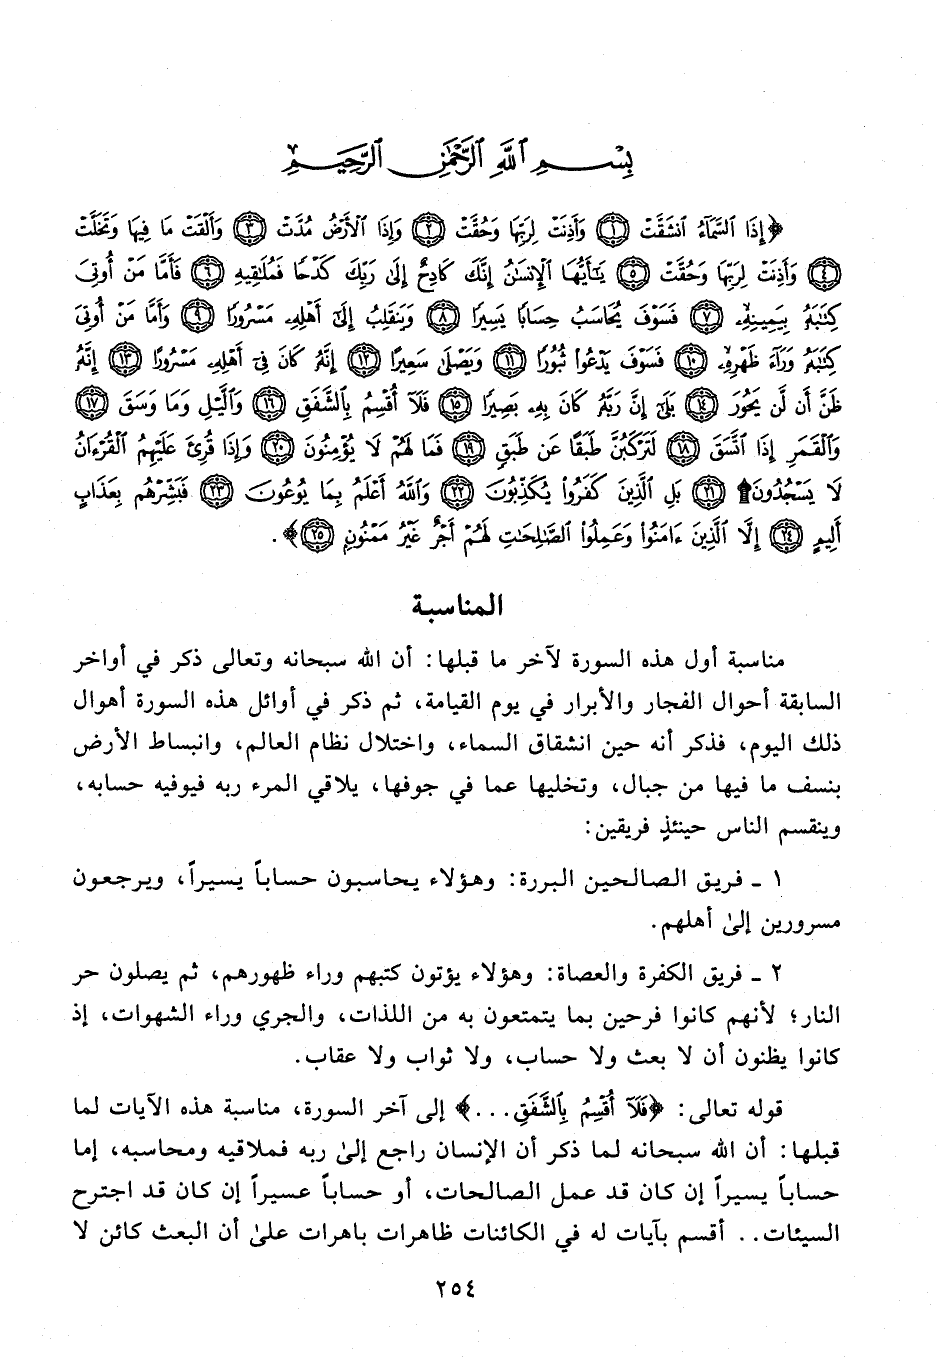 بِسْمِ ٱللَّهِ ٱلرَّحْمَٰنِ ٱلرَّحِيمِ
﴿إِذَا ٱلسَّمَآءُ ٱنشَقَّتْ ١ وَأَذِنَتْ لِرَبِّهَا وَحُقَّتْ ٢ وَإِذَا ٱلْأَرْضُ مُدَّتْ ٣ وَأَلْقَتْ مَا فِيهَا وَتَخَلَّتْ
٤ وَأَذِنَتْ لِرَبِّهَا وَحُقَّتْ ٥ يَٰٓأَيُّهَا ٱلْإِنسَٰنُ إِنَّكَ كَادِحٌ إِلَىٰ رَبِّكَ كَدْحًا فَمُلَٰقِيهِ ٦ فَأَمَّا مَنْ أُوتِىَ
كِتَٰبَهُۥ بِيَمِينِهِۦ ٧ فَسَوْفَ يُحَاسَبُ حِسَابًا يَسِيرًا ٨ وَيَنقَلِبُ إِلَىٰٓ أَهْلِهِۦ مَسْرُورًا ٩ وَأَمَّا مَنْ أُوتِىَ
كِتَٰبَهُۥ وَرَآءَ ظَهْرِهِۦ ١٠ فَسَوْفَ يَدْعُوا۟ ثُبُورًا ١١ وَيَصْلَىٰ سَعِيرًا ١٢ إِنَّهُۥ كَانَ فِىٓ أَهْلِهِۦ مَسْرُورًا ١٣ إِنَّهُۥ
ظَنَّ أَن لَّن يَحُورَ ١٤ بَلَىٰٓ إِنَّ رَبَّهُۥ كَانَ بِهِۦ بَصِيرًا ١٥ فَلَآ أُقْسِمُ بِٱلشَّفَقِ ١٦ وَٱلَّيْلِ وَمَا وَسَقَ ١٧
وَٱلْقَمَرِ إِذَا ٱتَّسَقَ ١٨ لَتَرْكَبُنَّ طَبَقًا عَن طَبَقٍ ١٩ فَمَا لَهُمْ لَا يُؤْمِنُونَ ٢٠ وَإِذَا قُرِئَ عَلَيْهِمُ ٱلْقُرْءَانُ
لَا يَسْجُدُونَ ۩ ٢١ بَلِ ٱلَّذِينَ كَفَرُوا۟ يُكَذِّبُونَ ٢٢ وَٱللَّهُ أَعْلَمُ بِمَا يُوعُونَ ٢٣ فَبَشِّرْهُم بِعَذَابٍ
أَلِيمٍ ٢٤ إِلَّا ٱلَّذِينَ ءَامَنُوا۟ وَعَمِلُوا۟ ٱلصَّٰلِحَٰتِ لَهُمْ أَجْرٌ غَيْرُ مَمْنُونٍ ٢٥﴾.
المناسبة
مناسبة أول هذه السورة لآخر ما قبلها: أن الله سبحانه وتعالى ذكر في أواخر
السابقة أحوال الفجار والأبرار في يوم القيامة، ثم ذكر في أوائل هذه السورة أهوال
ذلك اليوم، فذكر أنه حين انشقاق السماء، واختلال نظام العالم، وانبساط الأرض
بنسف ما فيها من جبال، وتخليها عما في جوفها، يلاقي المرء ربه فيوفيه حسابه،
وينقسم الناس حينئذٍ فريقين:
١ ـ فريق الصالحين البررة: وهؤلاء يحاسبون حساباً يسيراً، ويرجعون
مسرورين إلىٰ أهلهم.
٢ ـ فريق الكفرة والعصاة: وهؤلاء يؤتون كتبهم وراء ظهورهم، ثم يصلون حر
النار؛ لأنهم كانوا فرحين بما يتمتعون به من اللذات، والجري وراء الشهوات، إذ
كانوا يظنون أن لا بعث ولا حساب، ولا ثواب ولا عقاب.
قوله تعالى: ﴿فَلَآ أُقْسِمُ بِٱلشَّفَقِ...﴾ إلى آخر السورة، مناسبة هذه الآيات لما
قبلها: أن الله سبحانه لما ذكر أن الإنسان راجع إلىٰ ربه فملاقيه ومحاسبه، إما
حساباً يسيراً إن كان قد عمل الصالحات، أو حساباً عسيراً إن كان قد اجترح
السيئات.. أقسم بآيات له في الكائنات ظاهرات باهرات علىٰ أن البعث كائن لا
٢٥٤